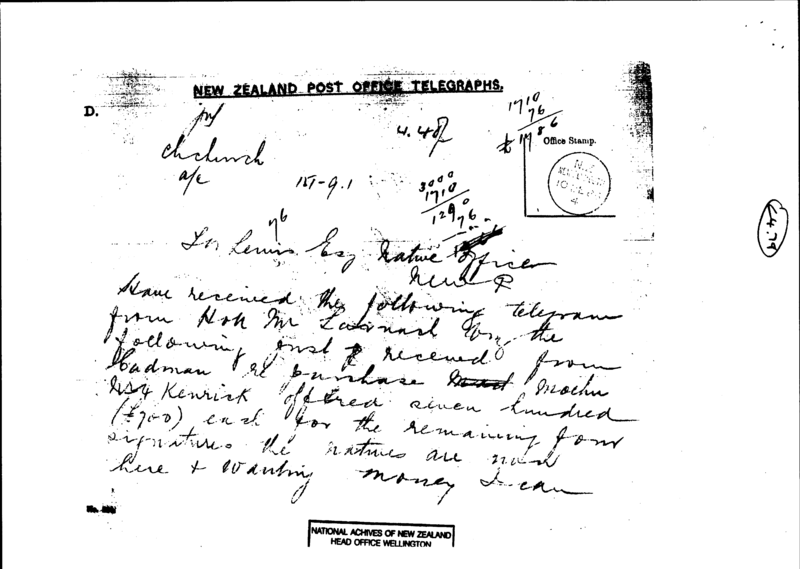 NEW ZEALAND POST OFFICE TELEGRAPHS.
D.
Chchurch
a/c
4.48p
1710
76
£ 1786
Office Stamp.
N.Z.
4
151-9.1
3000
1710
1290
76
76
T W Lewis Esq Native Officer
New P
Have received the following telegram
from Hon Mr Larnach the
following just received from
Cadman re purchase Moehu
No 4 Kenrick offered seven hundred
(£700) each for the remaining four
signatures the natives are now
here & wanting money I can
C4.79
NATIONAL ACHIVES OF NEW ZEALAND
HEAD OFFICE WELLINGTON